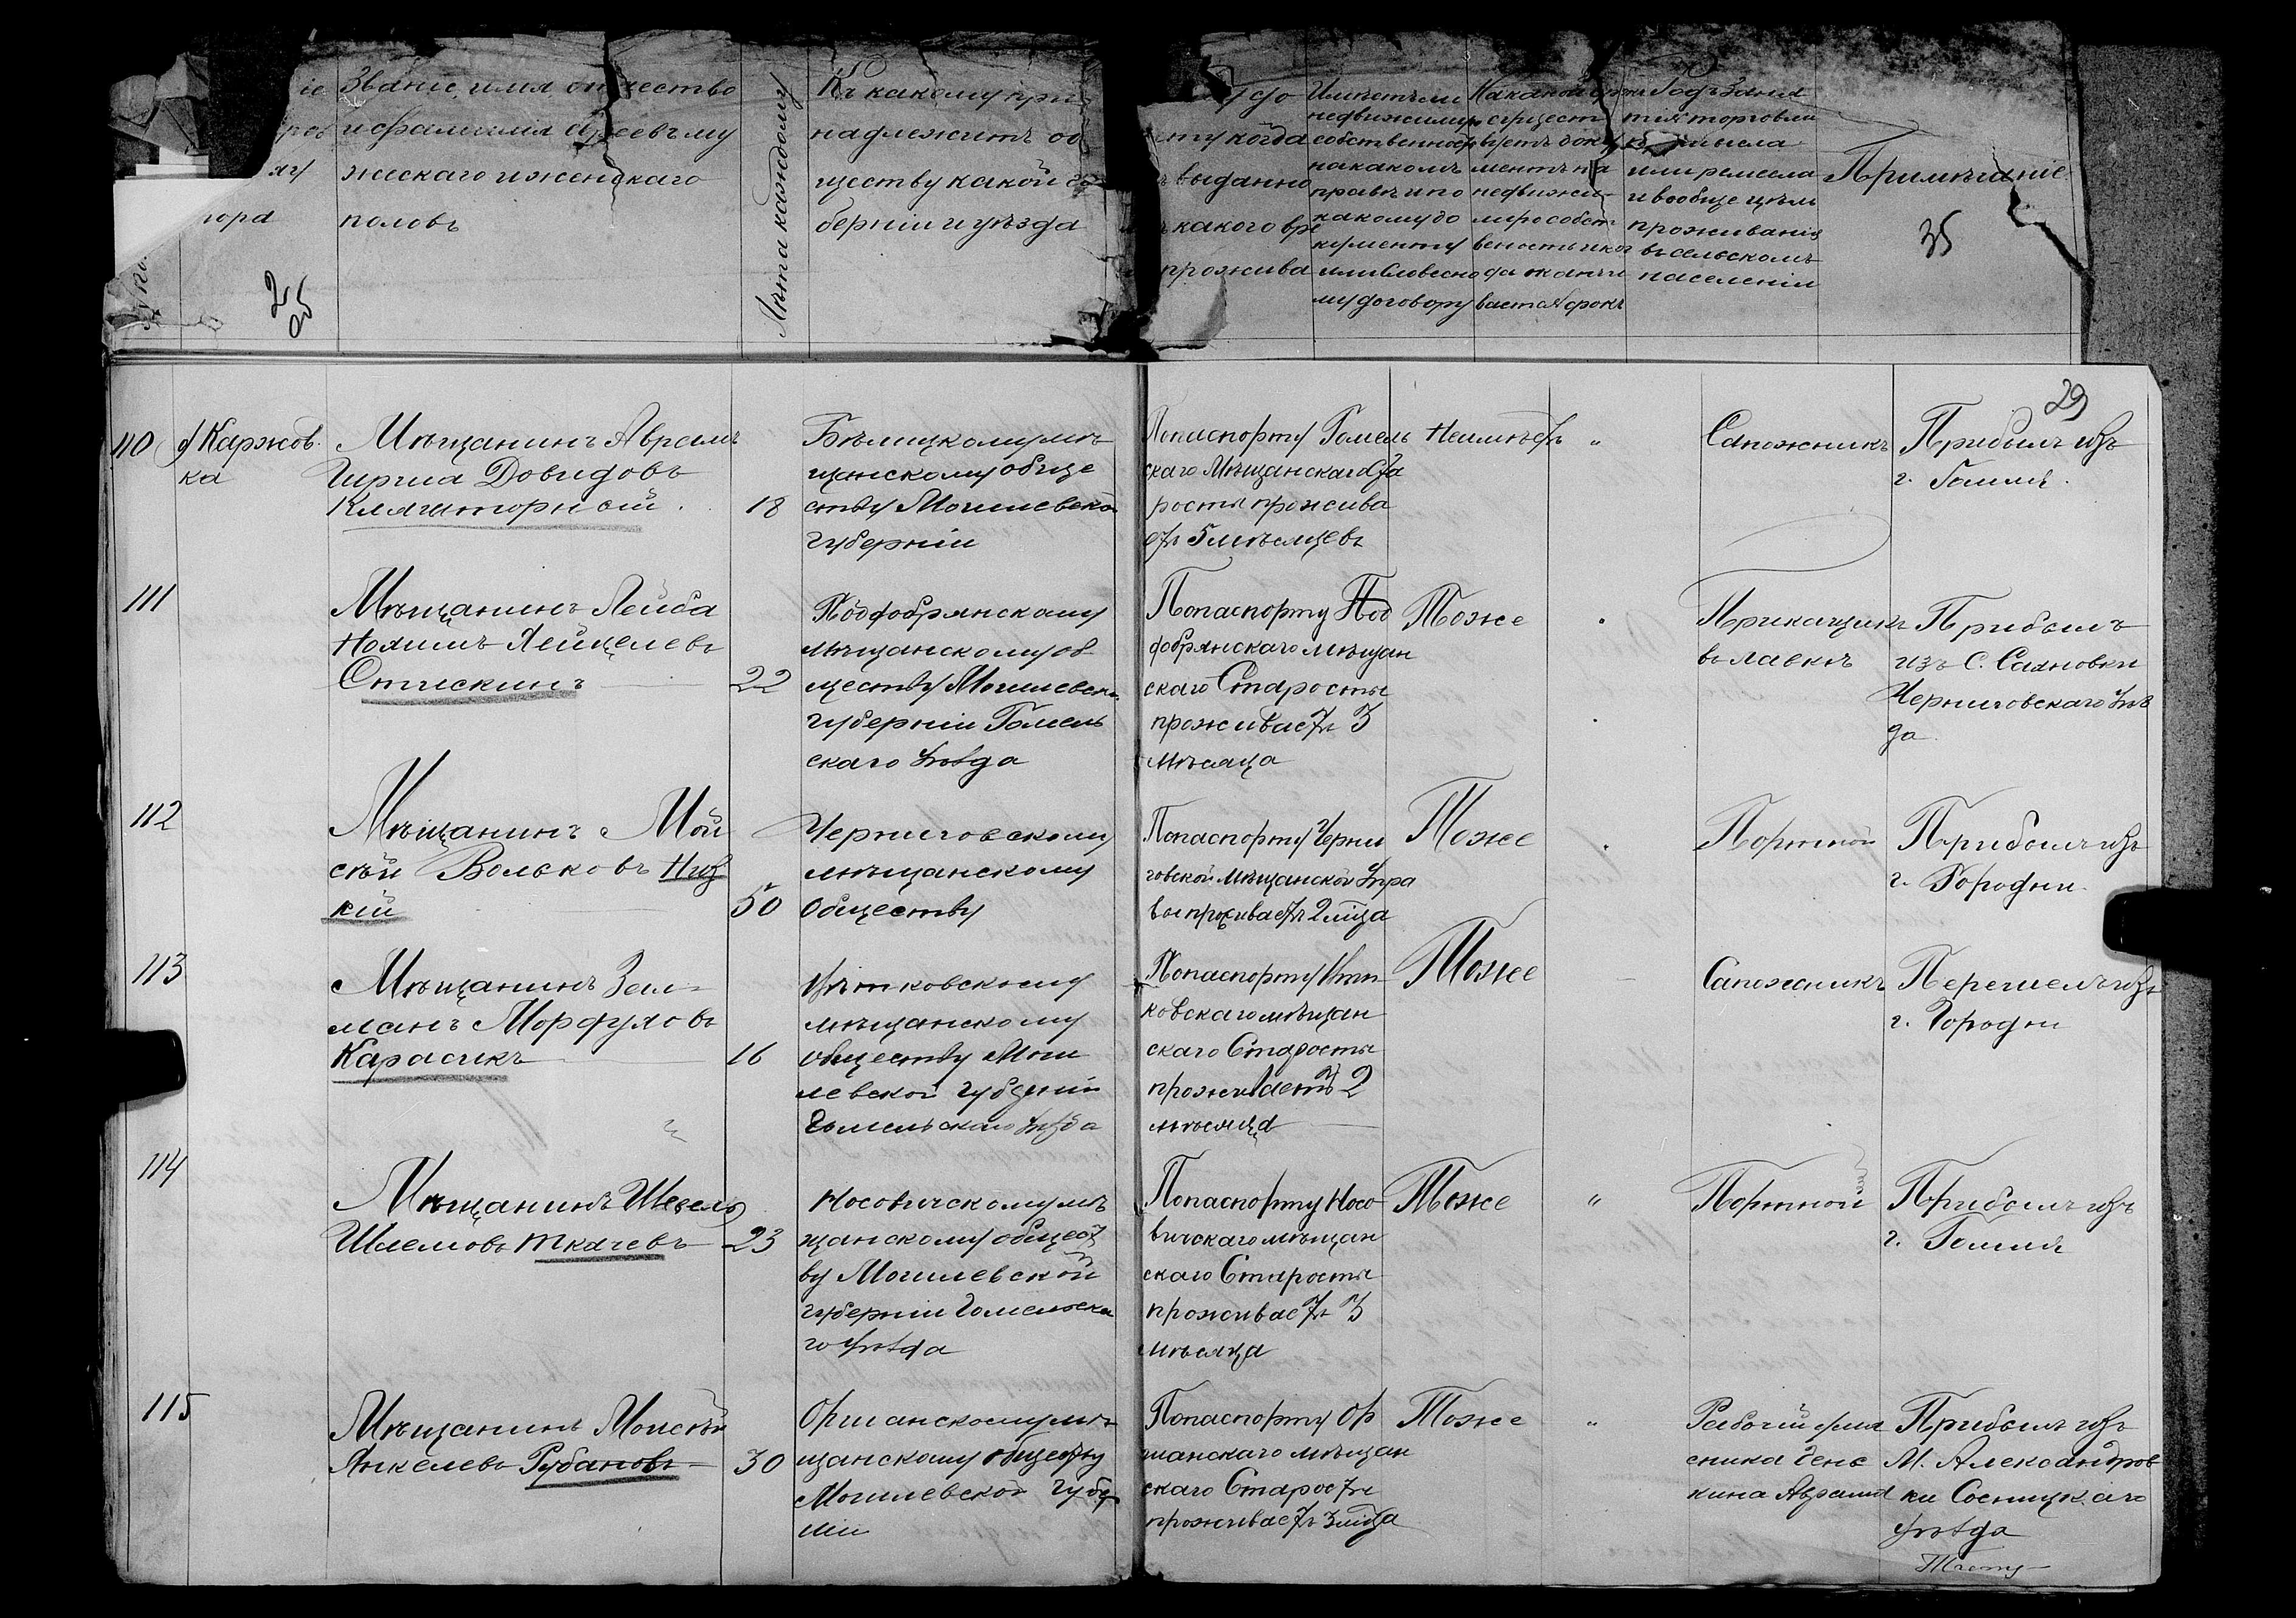 Званіе, имя отчество
и фамилія Евреевъ му
жескаго и женскаго
половъ
Лѣта каждому
Къ какому при
надлежитъ об
ществу какой гу
берніи и уѣзда
когда
выдан
какого вре
прожива
Имѣетъ ли
недвижимую
собственность
на какомъ
правѣ и по
какому до
кументу
или словесно
му договору
На какой срокъ
существ
вуетъ доку
ментъ на
недвижи
мую собст
венность и ког
да оканчи
вается срокъ
Родъ заня
тія торговли
промысла
или ремесла
и вообще цѣль
проживанія
въ сельскомъ
населеніи
Примѣчаніе
25
35
29
110
д Каржов
ка
Мѣщанинъ Аврамъ
Гирша Довидовъ
Кляшторный
18
Бѣлицкому мѣ
щанскому обще
ству Могилевской
губерніи
По паспорту Гомель
скаго Мѣщанскаго Ста
росты прожива
етъ 5 мѣсяцевъ
Не имѣетъ
"
Сапожникъ
Прибылъ изъ
г. Гомля.
111
Мѣщанинъ Лейба
Нохимъ Лейцелевъ
22
Поддобрянскому
мѣщанскому об
ществу Могилевской
губерніи Гомель
скаго уѣзда
По паспорту Под
добрянскаго мѣщан
скаго Старосты
проживаетъ 3
мѣсяца
Тоже
Прикащикъ
въ лавкѣ
Прибылъ
изъ С. Сахновки
Черниговскаго уѣз
да
112
Мѣщанинъ Мой
сѣй Вольковъ Низ
кій
50
Черниговскому
мѣщанскому
обществу
По паспорту Черни
говской мѣщанской упра
вы проживаетъ 2 мѣца
Тоже
Портной
Прибылъ изъ
г. Городни.
113
Мѣщанинъ Зел-
манъ Мордухов
Карасикъ
16
Вѣтковскому
мѣщанскому
обществу Моги
левской губерніи
Гомельскаго уѣзда
По паспорту Вѣт
ковскаго мѣщан
скаго Старосты
проживаетъ 2
мѣсяца
Тоже
Сапожникъ
Перешелъ изъ
г. Городни
114
Мѣщанинъ Шевель
Шлемовъ Ткачевъ
23
Носовичскому мѣ
щанскому общест
ву Могилевской
губерніи Гомельска
го уѣзда
По паспорту Носо-
вичскаго мѣщан
скаго Старосты
проживаетъ 3
мѣсяца
Тоже
"
Портной
Прибылъ изъ
г. Гомля
115
Мѣщанинъ Моисѣй
Янкелевъ Рубановъ
30
Оршанскому мѣ
щанскому обществу
Могилевской губер
ніи
По паспорту Ор
шанскаго мѣщан
скаго Старосты
проживаетъ 3 мѣца
Тоже
"
Рабочій у мя
сника Чене
кина Аврама
Прибылъ изъ
М. Александров
ки Сосницкаго
уѣзда